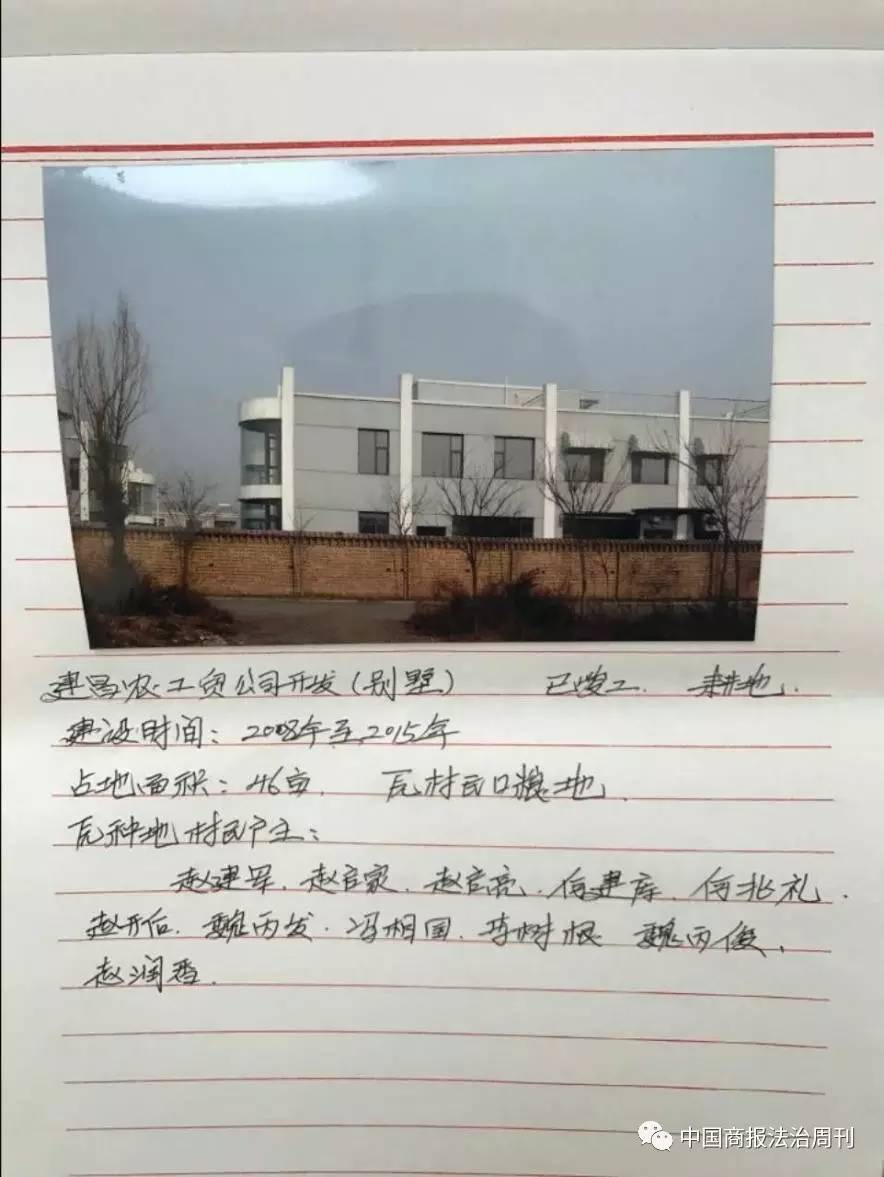 建昌农工贸公司开发(别墅) 已竣工. 耕地.
建设时间: 2008年至2015年
占地面积: 46亩. 瓦村民口粮地.
瓦种地村民户主:
赵建军. 赵官家. 赵官亮. 何建库. 何兆礼.
赵开后. 魏丙发. 冯相国. 李树根. 魏丙俊.
赵润香.
中国商报法治周刊